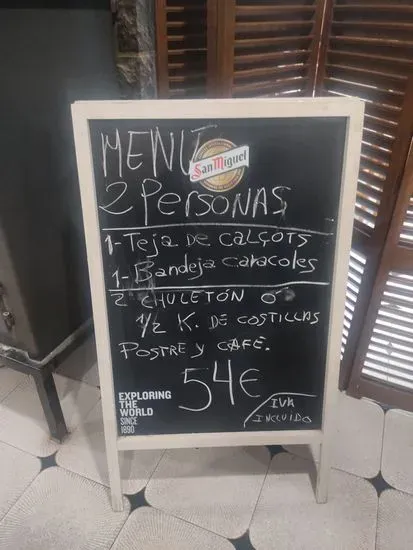 MENÚ
San Miguel
2 PERSONAS
1- TEJA DE CALÇOTS
1- BANDEJA CARACOLES
2 CHULETÓN Ó
1/2 K. DE COSTILLAS
POSTRE Y CAFÉ.
54€
IVA
INCLUIDO
EXPLORING
THE
WORLD
SINCE
1890